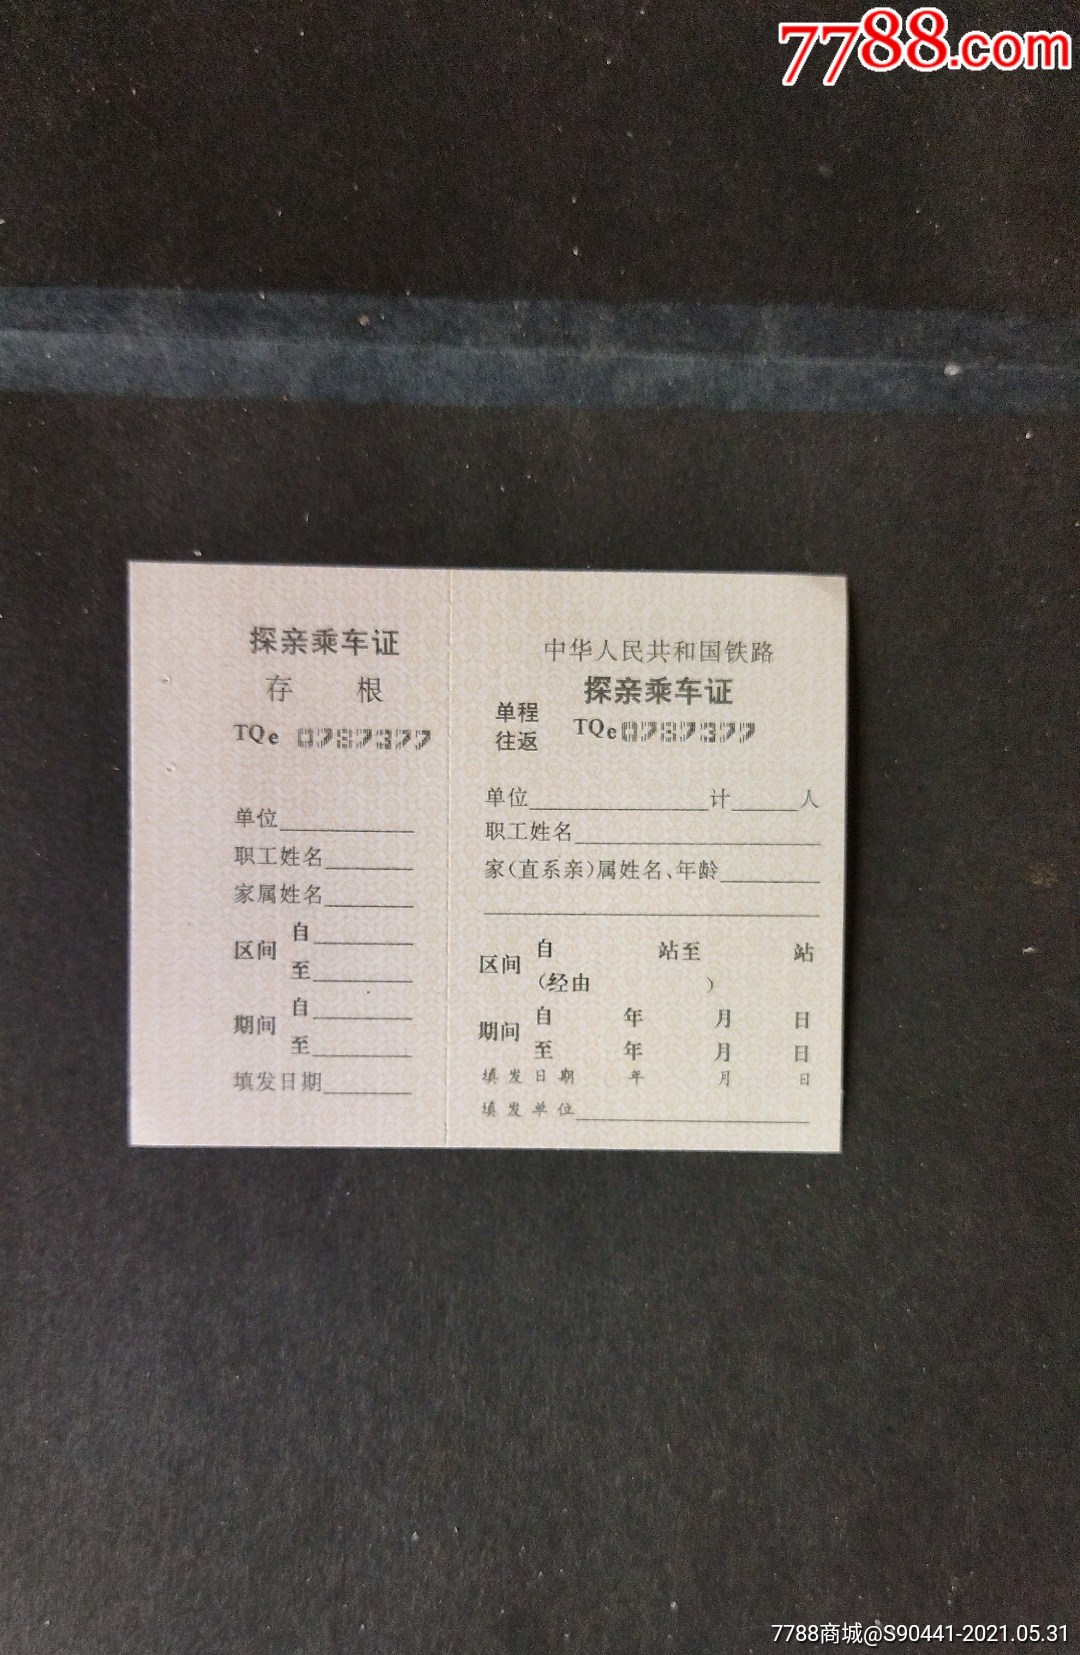 7788.com
探亲乘车证
存 根
TQe 0787377
单位
职工姓名
家属姓名
区间 自
至
期间 自
至
填发日期
中华人民共和国铁路
探亲乘车证
单程
往返
TQe 0787377
单位 计 人
职工姓名
家(直系亲)属姓名、年龄
区间 自 站至 站
(经由 )
期间 自 年 月 日
至 年 月 日
填发日期 年 月 日
填发单位
7788商城@S90441-2021.05.31